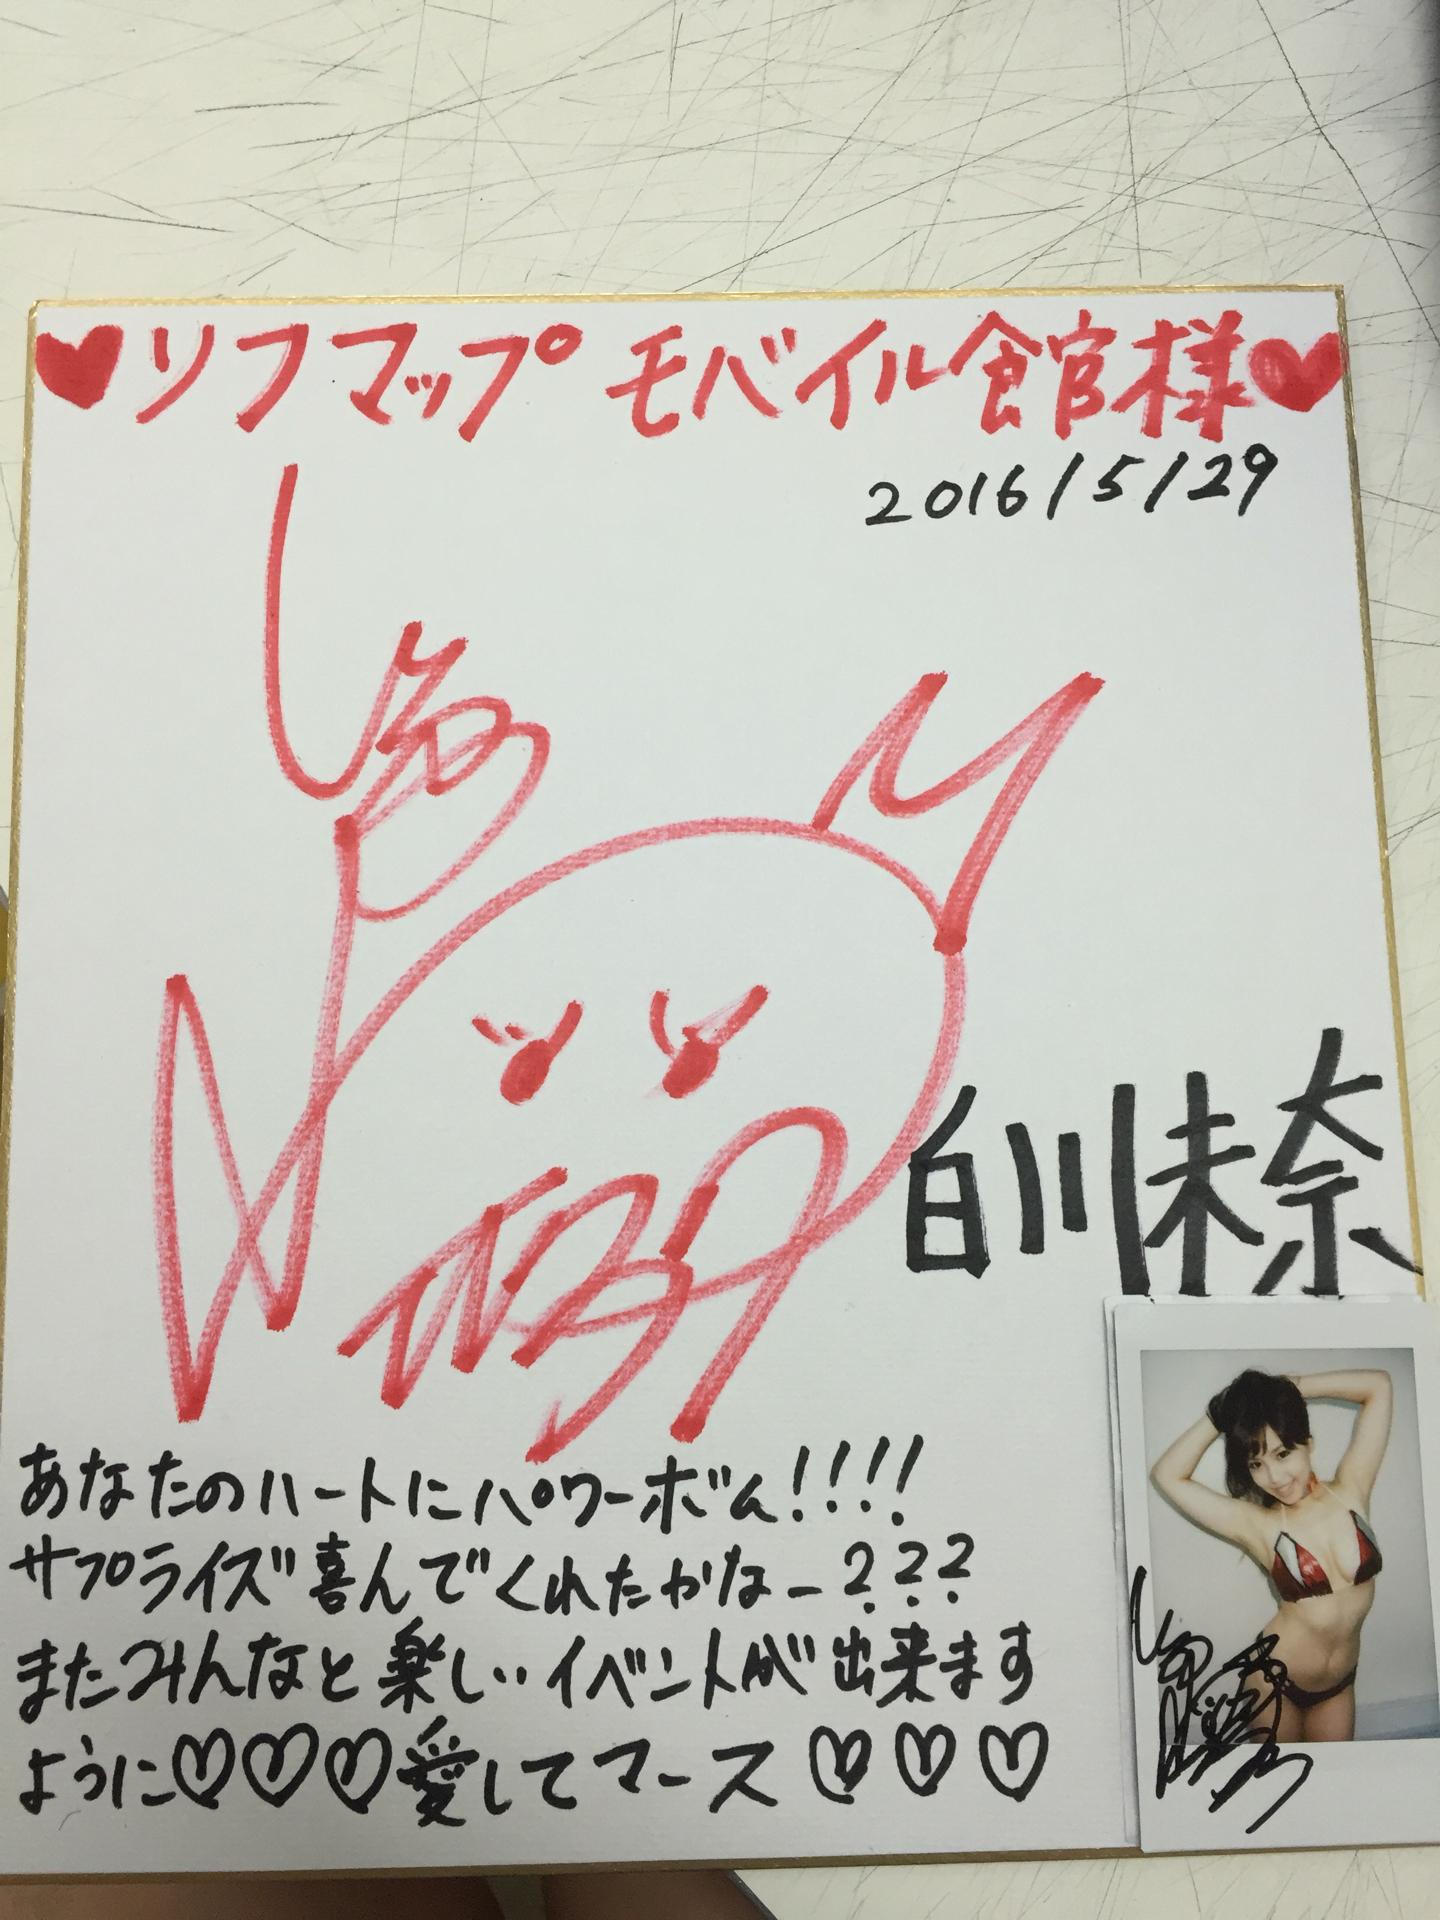 ♥ソフマップ モバイル館様♥
2016/5/29
白川未奈
あなたのハートにパワーボム!!!!
サプライズ喜んでくれたかなー???
またみんなと楽しいイベントが出来ます
ように♡♡♡愛してマース♡♡♡